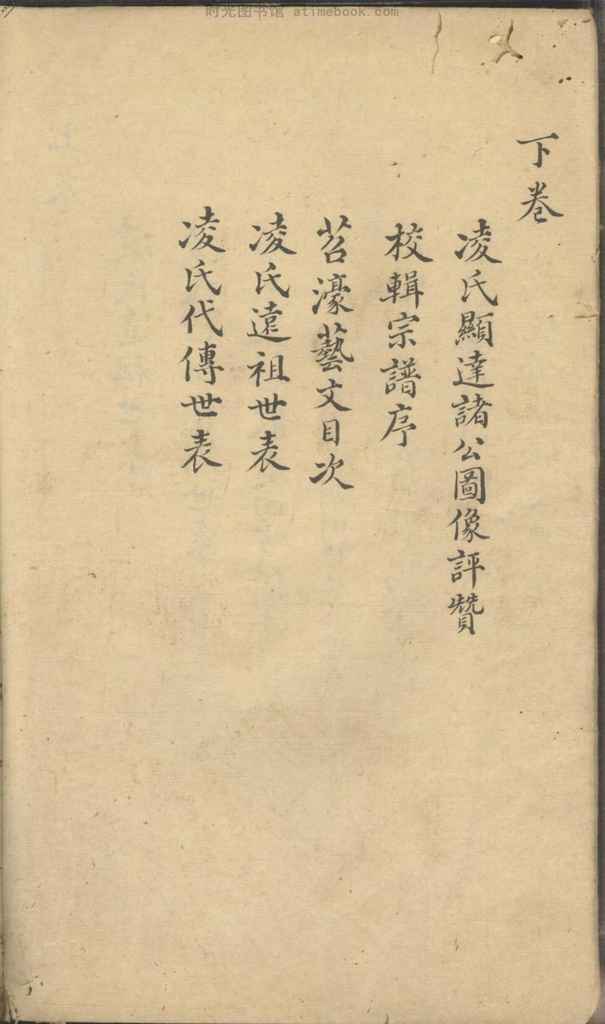 时光图书馆 atimebook.com
下卷
凌氏顯達諸公圖像評贊
校輯宗譜序
苕濠藝文目次
凌氏遠祖世表
凌氏代傳世表